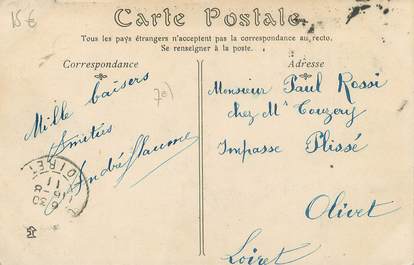 15€
Carte Postale
Tous les pays étrangers n'acceptent pas la correspondance au recto.
Se renseigner à la poste.
Correspondance
Adresse
7e)
Mille baisers
Amitiés
André
Monsieur Paul Rossi
chez Mr
Impasse Plissé
Olivet
Loiret
LOIRET
6 30
16-8
11